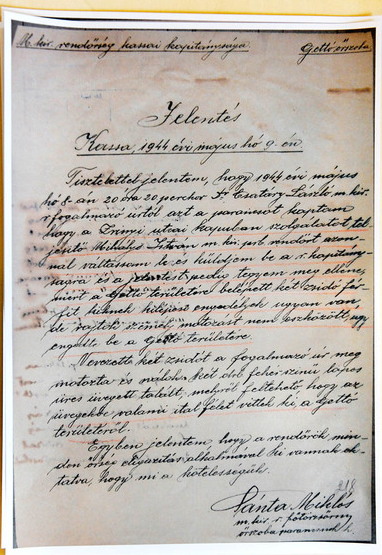 M. kir. rendőrség kassai kapitánysága. Gettó őrszoba
Jelentés
Kassa, 1944 évi május hó 9.-én.
Tisztelettel jelentem, hogy 1944 évi május
hó 8-án 20 óra 20 perckor Dr Csatáry László m. kir.
r. fogalmazó úrtól azt a parancsot kaptam
hogy a Zrinyi utcai kapuban szolgálatot tel-
jesitő Mihályi István m. kir. prb rendőrt azon-
nal váltassam le és küldjem be a r. kapitány-
ságra és a jelentést pedig tegyem meg ellene,
mert a Gettó területére belépett két zsidó fér-
fit kiknek kilépési engedélyük ugyan van,
de rajtok személy motozást nem eszközölt, úgy
engedte be a Gettó területére.
Nevezett két zsidót a fogalmazó úr meg
motozta és náluk két drb fehér színű lapos
üres üveget talált, melyről feltehető hogy az
üvegekbe valami ital félét vittek ki, a Gettó
területéről.
Egyben jelentem, hogy a rendőrök min-
den őrség eligazitás alkalmával ki vannak ok-
tatva, hogy mi a kötelességük.
218
Sánta Miklós
m. kir. r. főtörzsőrm
őrszoba parancsnok h.